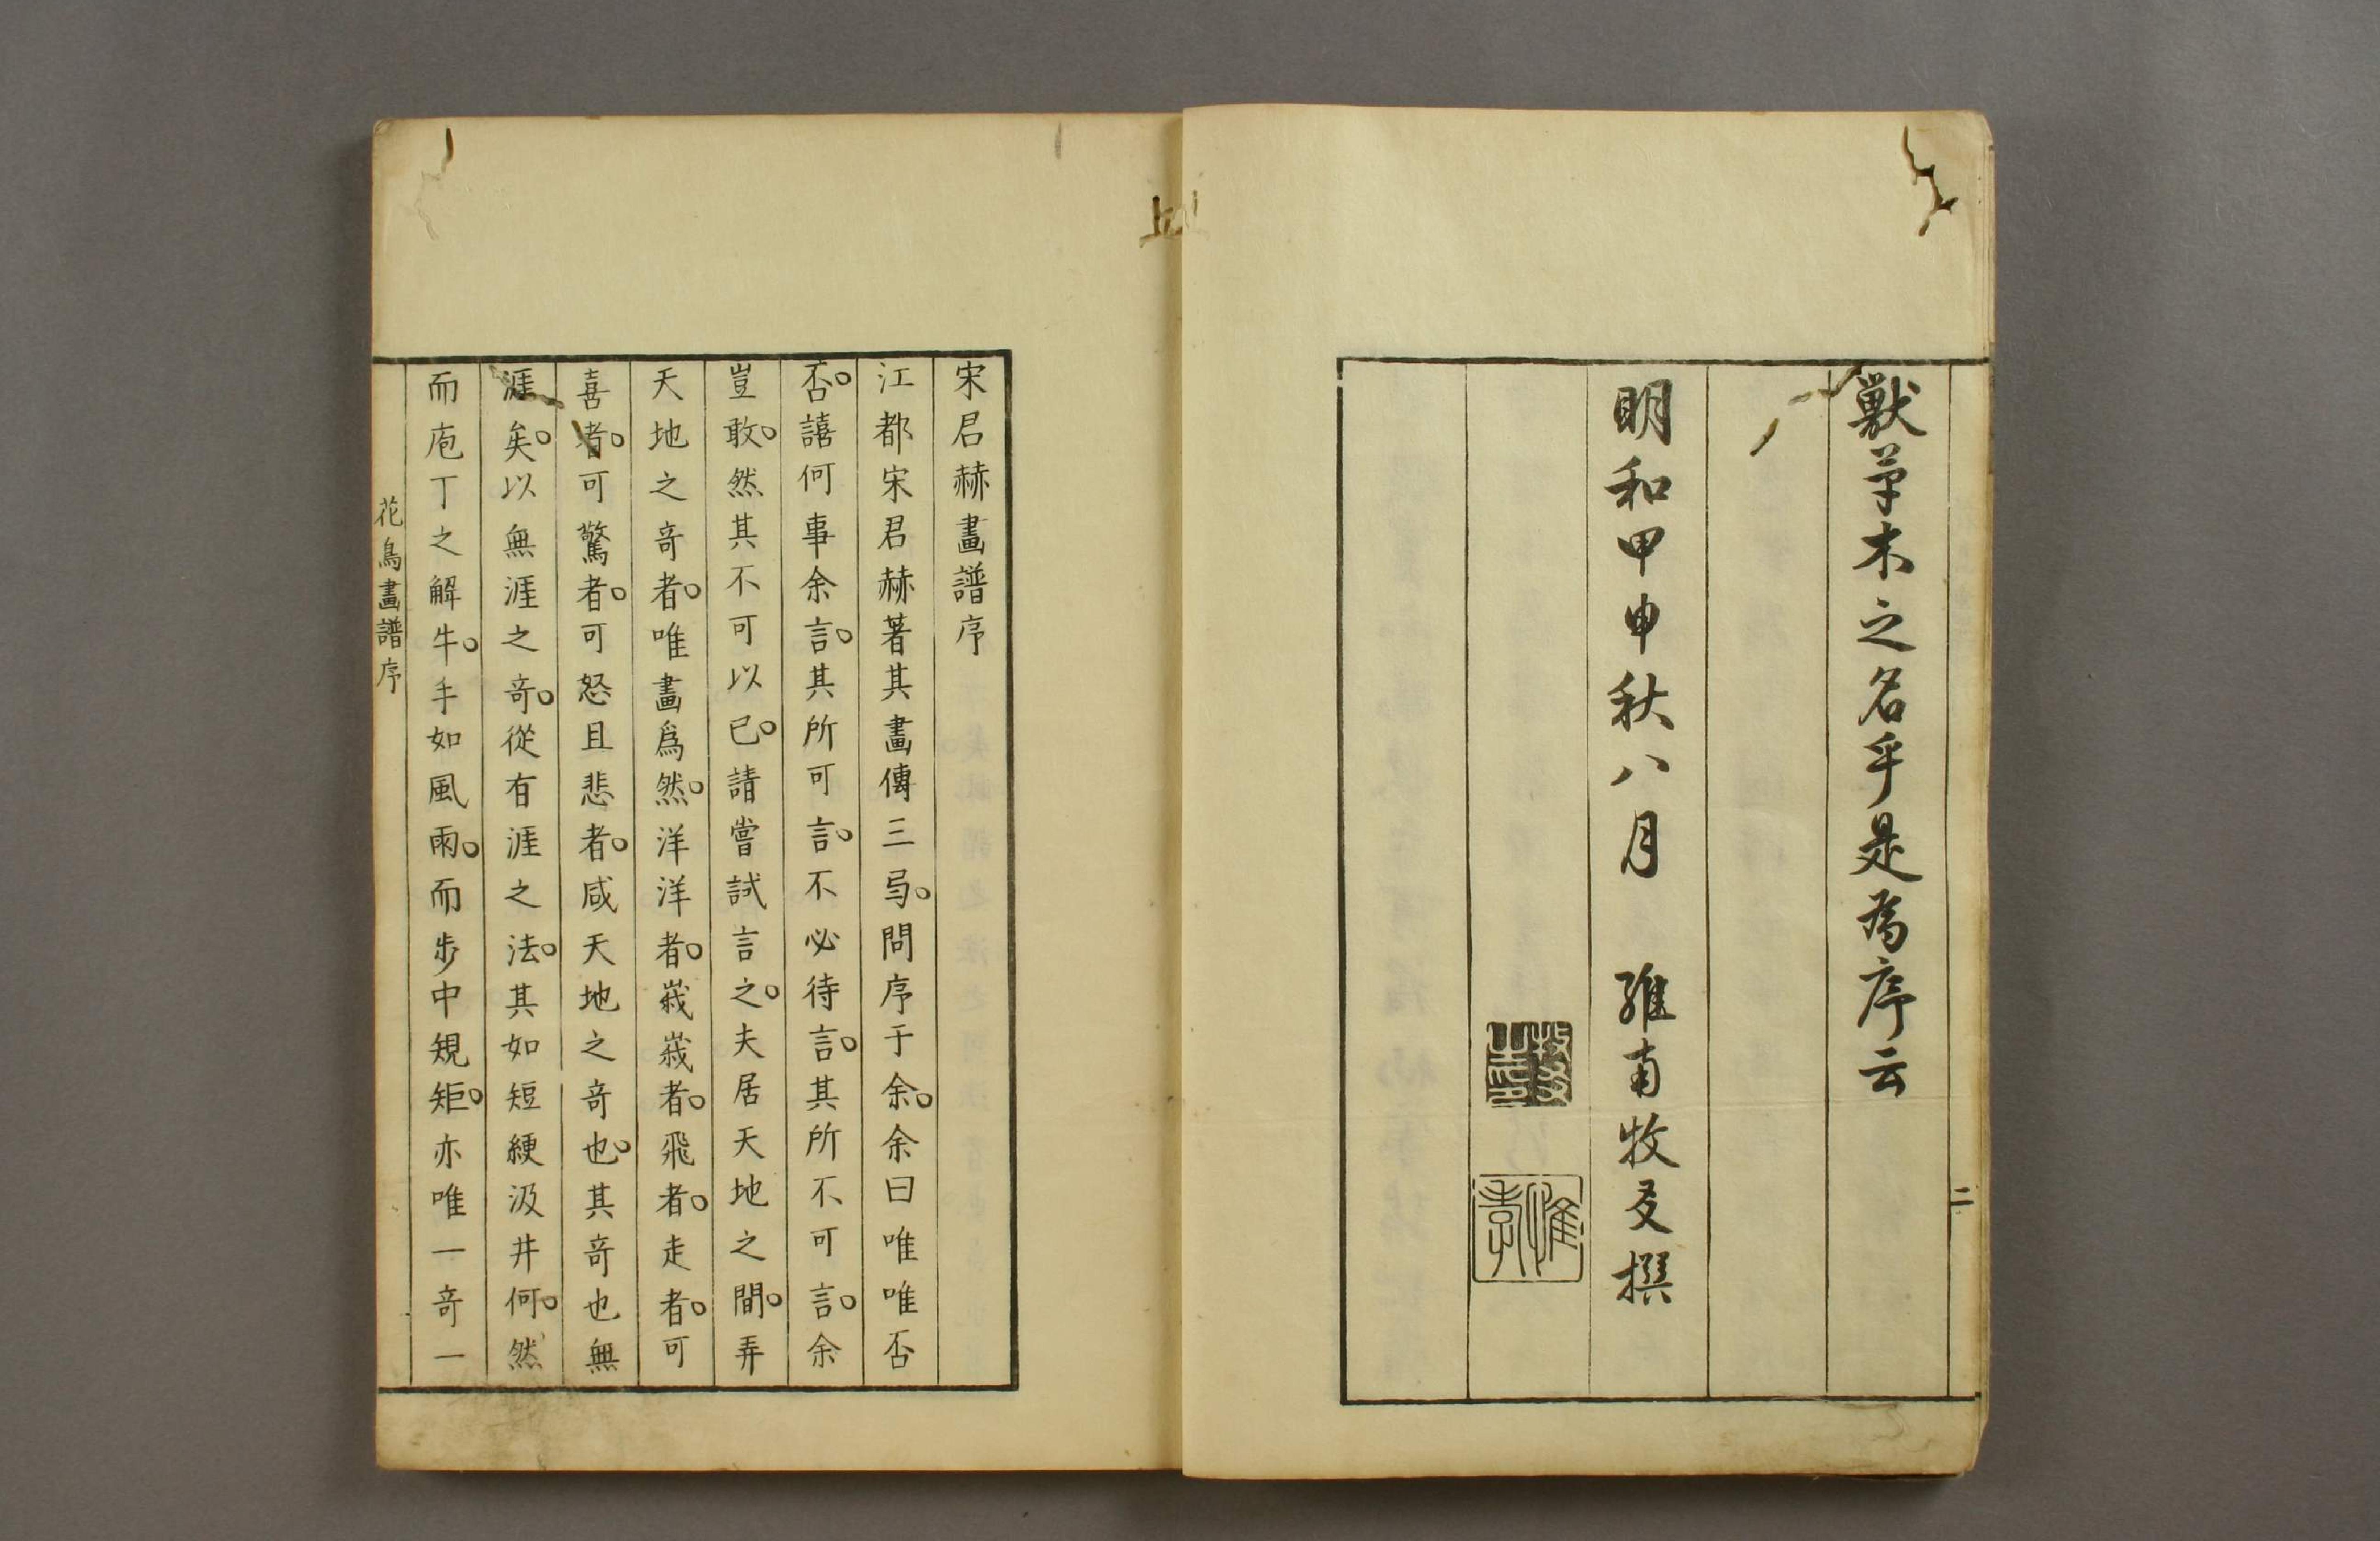 獸草木之名乎是為序云
明和甲申秋八月　維南牧叐撰
二
宋君赫畫譜序
江都宋君赫著其畫傳三㢧。問序于余。余曰唯唯否
否。譆何事余言。其所可言。不必待言。其所不可言。余
豈敢。然其不可以已。請嘗試言之。夫居天地之間。弄
天地之竒者。唯畫爲然。洋洋者。峩峩者。飛者。走者。可
喜者。可驚者。可怒且悲者。咸天地之竒也。其竒也無
涯矣。以無涯之竒。從有涯之法。其如短綆汲井何。然
而庖丁之解牛。手如風雨。而步中規矩。亦唯一竒一
花鳥畫譜序